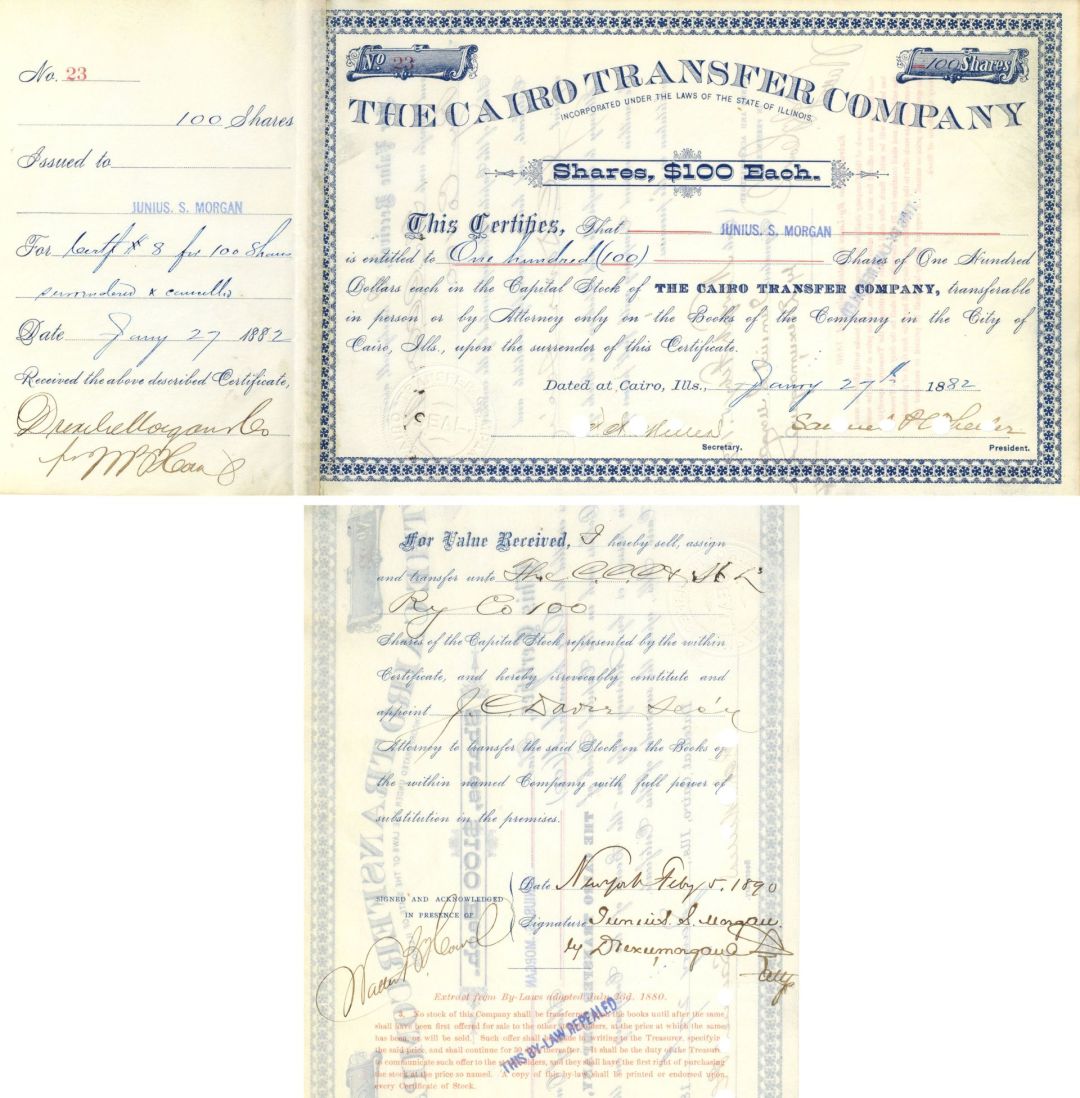 No. 23
100 Shares
Issued to
JUNIUS. S. MORGAN
For Certf # 8 for 100 Shares
surrendered & cancelled
Date Jany 27 1882
Received the above described Certificate,
Drexel Morgan & Co
for
No 23
100 Shares
THE CAIRO TRANSFER COMPANY
INCORPORATED UNDER THE LAWS OF THE STATE OF ILLINOIS.
Shares, $100 Each.
This Certifies, That JUNIUS. S. MORGAN
is entitled to One hundred (100) Shares of One Hundred
Dollars each in the Capital Stock of THE CAIRO TRANSFER COMPANY, transferable
in person or by Attorney only on the Books of the Company in the City of
Cairo, Ills., upon the surrender of this Certificate.
Dated at Cairo, Ills., Jany 27th 1882
Secretary.
President.
For Value Received, I hereby sell, assign
and transfer unto The C.C.C. & St L
Ry Co 100
Shares of the Capital Stock represented by the within
Certificate, and hereby irrevocably constitute and
appoint J. C. Davie Sec'y
Attorney to transfer the said Stock on the Books of
the within named Company with full power of
substitution in the premises.
Date New York Feby 5. 1890
SIGNED AND ACKNOWLEDGED
IN PRESENCE OF
Signature Junius S. Morgan
by Drexel Morgan & Co
Atty
Extract from By-Laws adopted July 13d, 1880.
3. No stock of this Company shall be transferred on the books until after the same
shall have been first offered for sale to the other stockholders, at the price at which the same
has been, or will be sold. Such offer shall be made in writing to the Treasurer, specifying
the said price, and shall continue for 30 days thereafter. It shall be the duty of the Treasurer
to communicate such offer to the stockholders, and they shall have the first right of purchasing
the stock at the price so named. A copy of this by-law shall be printed or endorsed upon
every Certificate of Stock.
THIS BY-LAW REPEALED